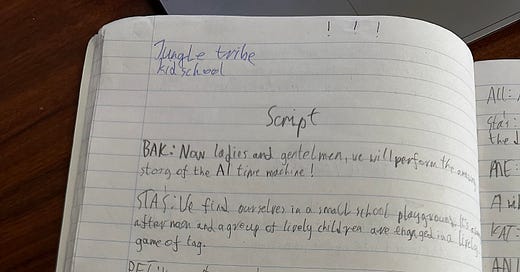 ! ! !
Jungle tribe
kid school
Script
BAK: Now ladies and gentelmen, we will perform the
story of the AI time machine!
STAS: We find ourselves in a small school playground.
after noon and a group of lively children are engaged in a lively
game of tag.
All:
Stas:
the
A
KAT:
AN